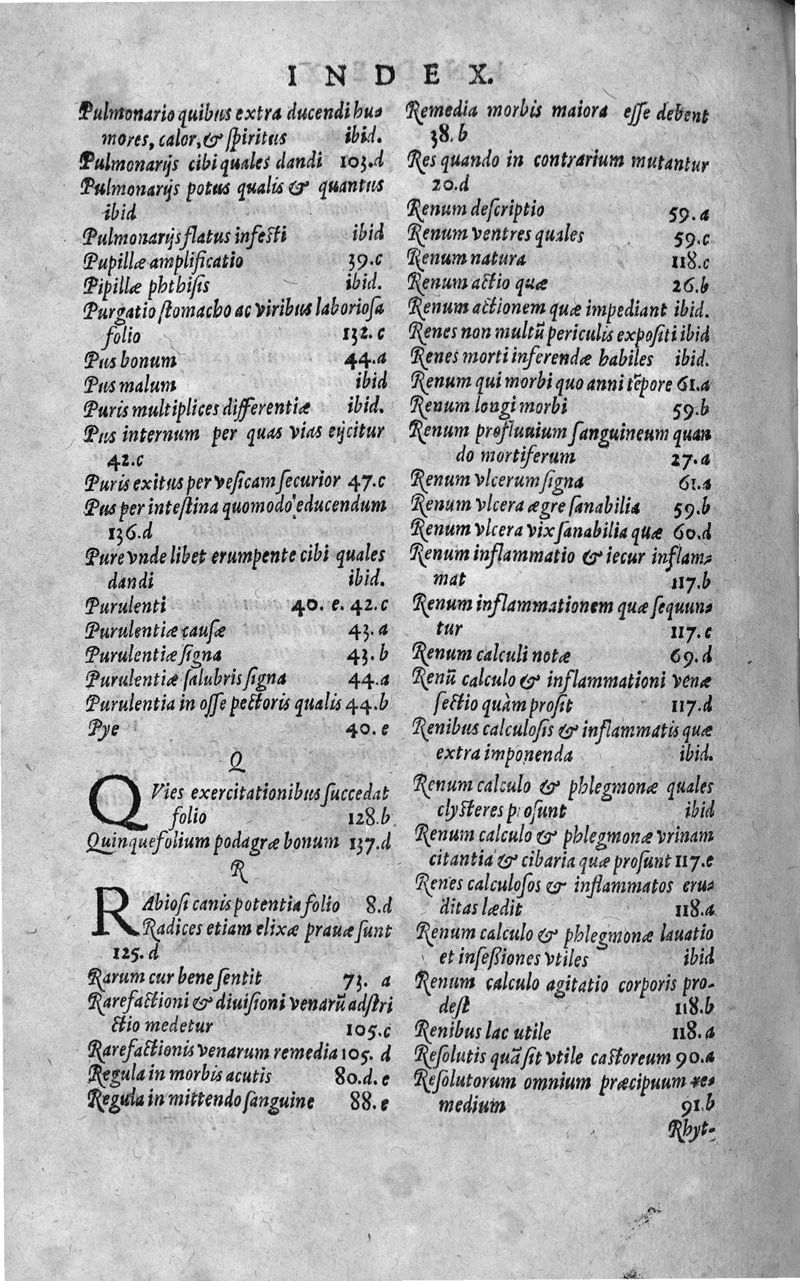 INDEX.
Pulmonario quibus extra ducendi hu-
mores, calor, & spiritus ibid.
Pulmonarijs cibi quales dandi 103.d
Pulmonarijs potus qualis & quantus
ibid
Pulmonarijs flatus infesti ibid
Pupillæ amplificatio 39.c
Pipillæ phthisis ibid.
Purgatio stomacho ac viribus laboriosa
folio 132.c
Pus bonum 44.a
Pus malum ibid
Puris multiplices differentiæ ibid.
Pus internum per quas vias eijcitur
42.c
Puris exitus per vesicam securior 47.c
Pus per intestina quomodo educendum
136.d
Pure vnde libet erumpente cibi quales
dandi ibid.
Purulenti 40. e. 42.c
Purulentiæ causæ 43.a
Purulentiæ signa 43.b
Purulentiæ salubris signa 44.a
Purulentia in osse pectoris qualis 44.b
Pye 40.e
Q
QVies exercitationibus succedat
folio 128.b
Quinquefolium podagræ bonum 137.d
R
RAbiosi canis potentia folio 8.d
Radices etiam elixæ prauæ sunt
125.d
Rarum cur bene sentit 73. a
Rarefactioni & diuisioni venarū adstri
ctio medetur 105.c
Rarefactionis venarum remedia 105. d
Regula in morbis acutis 80.d.e
Regula in mittendo sanguine 88.e
Remedia morbis maiora esse debent
38.b
Res quando in contrarium mutantur
20.d
Renum descriptio 59.a
Renum ventres quales 59.c
Renum natura 118.c
Renum actio quæ 26.b
Renum actionem quæ impediant ibid.
Renes non multū periculis expositi ibid
Renes morti inferendæ habiles ibid.
Renum qui morbi quo anni tēpore 61.a
Renum longi morbi 59.b
Renum profluuium sanguineum quan
do mortiferum 27.a
Renum vlcerum signa 61.a
Renum vlcera ægre sanabilia 59.b
Renum vlcera vix sanabilia quæ 60.d
Renum inflammatio & iecur inflam-
mat 117.b
Renum inflammationem quæ sequun-
tur 117.c
Renum calculi notæ 69.d
Renū calculo & inflammationi venæ
sectio quàm prosit 117.d
Renibus calculosis & inflammatis quæ
extra imponenda ibid.
Renum calculo & phlegmonæ quales
clysteres prosunt ibid
Renum calculo & phlegmonæ vrinam
citantia & cibaria quæ prosunt 117.e
Renes calculosos & inflammatos eru-
ditas lædit 118.a
Renum calculo & phlegmonæ lauatio
et insessiones vtiles ibid
Renum calculo agitatio corporis pro-
dest 118.b
Renibus lac utile 118.a
Resolutis quā sit vtile castoreum 90.a
Resolutorum omnium præcipuum re-
medium 91.b
Rhyt-